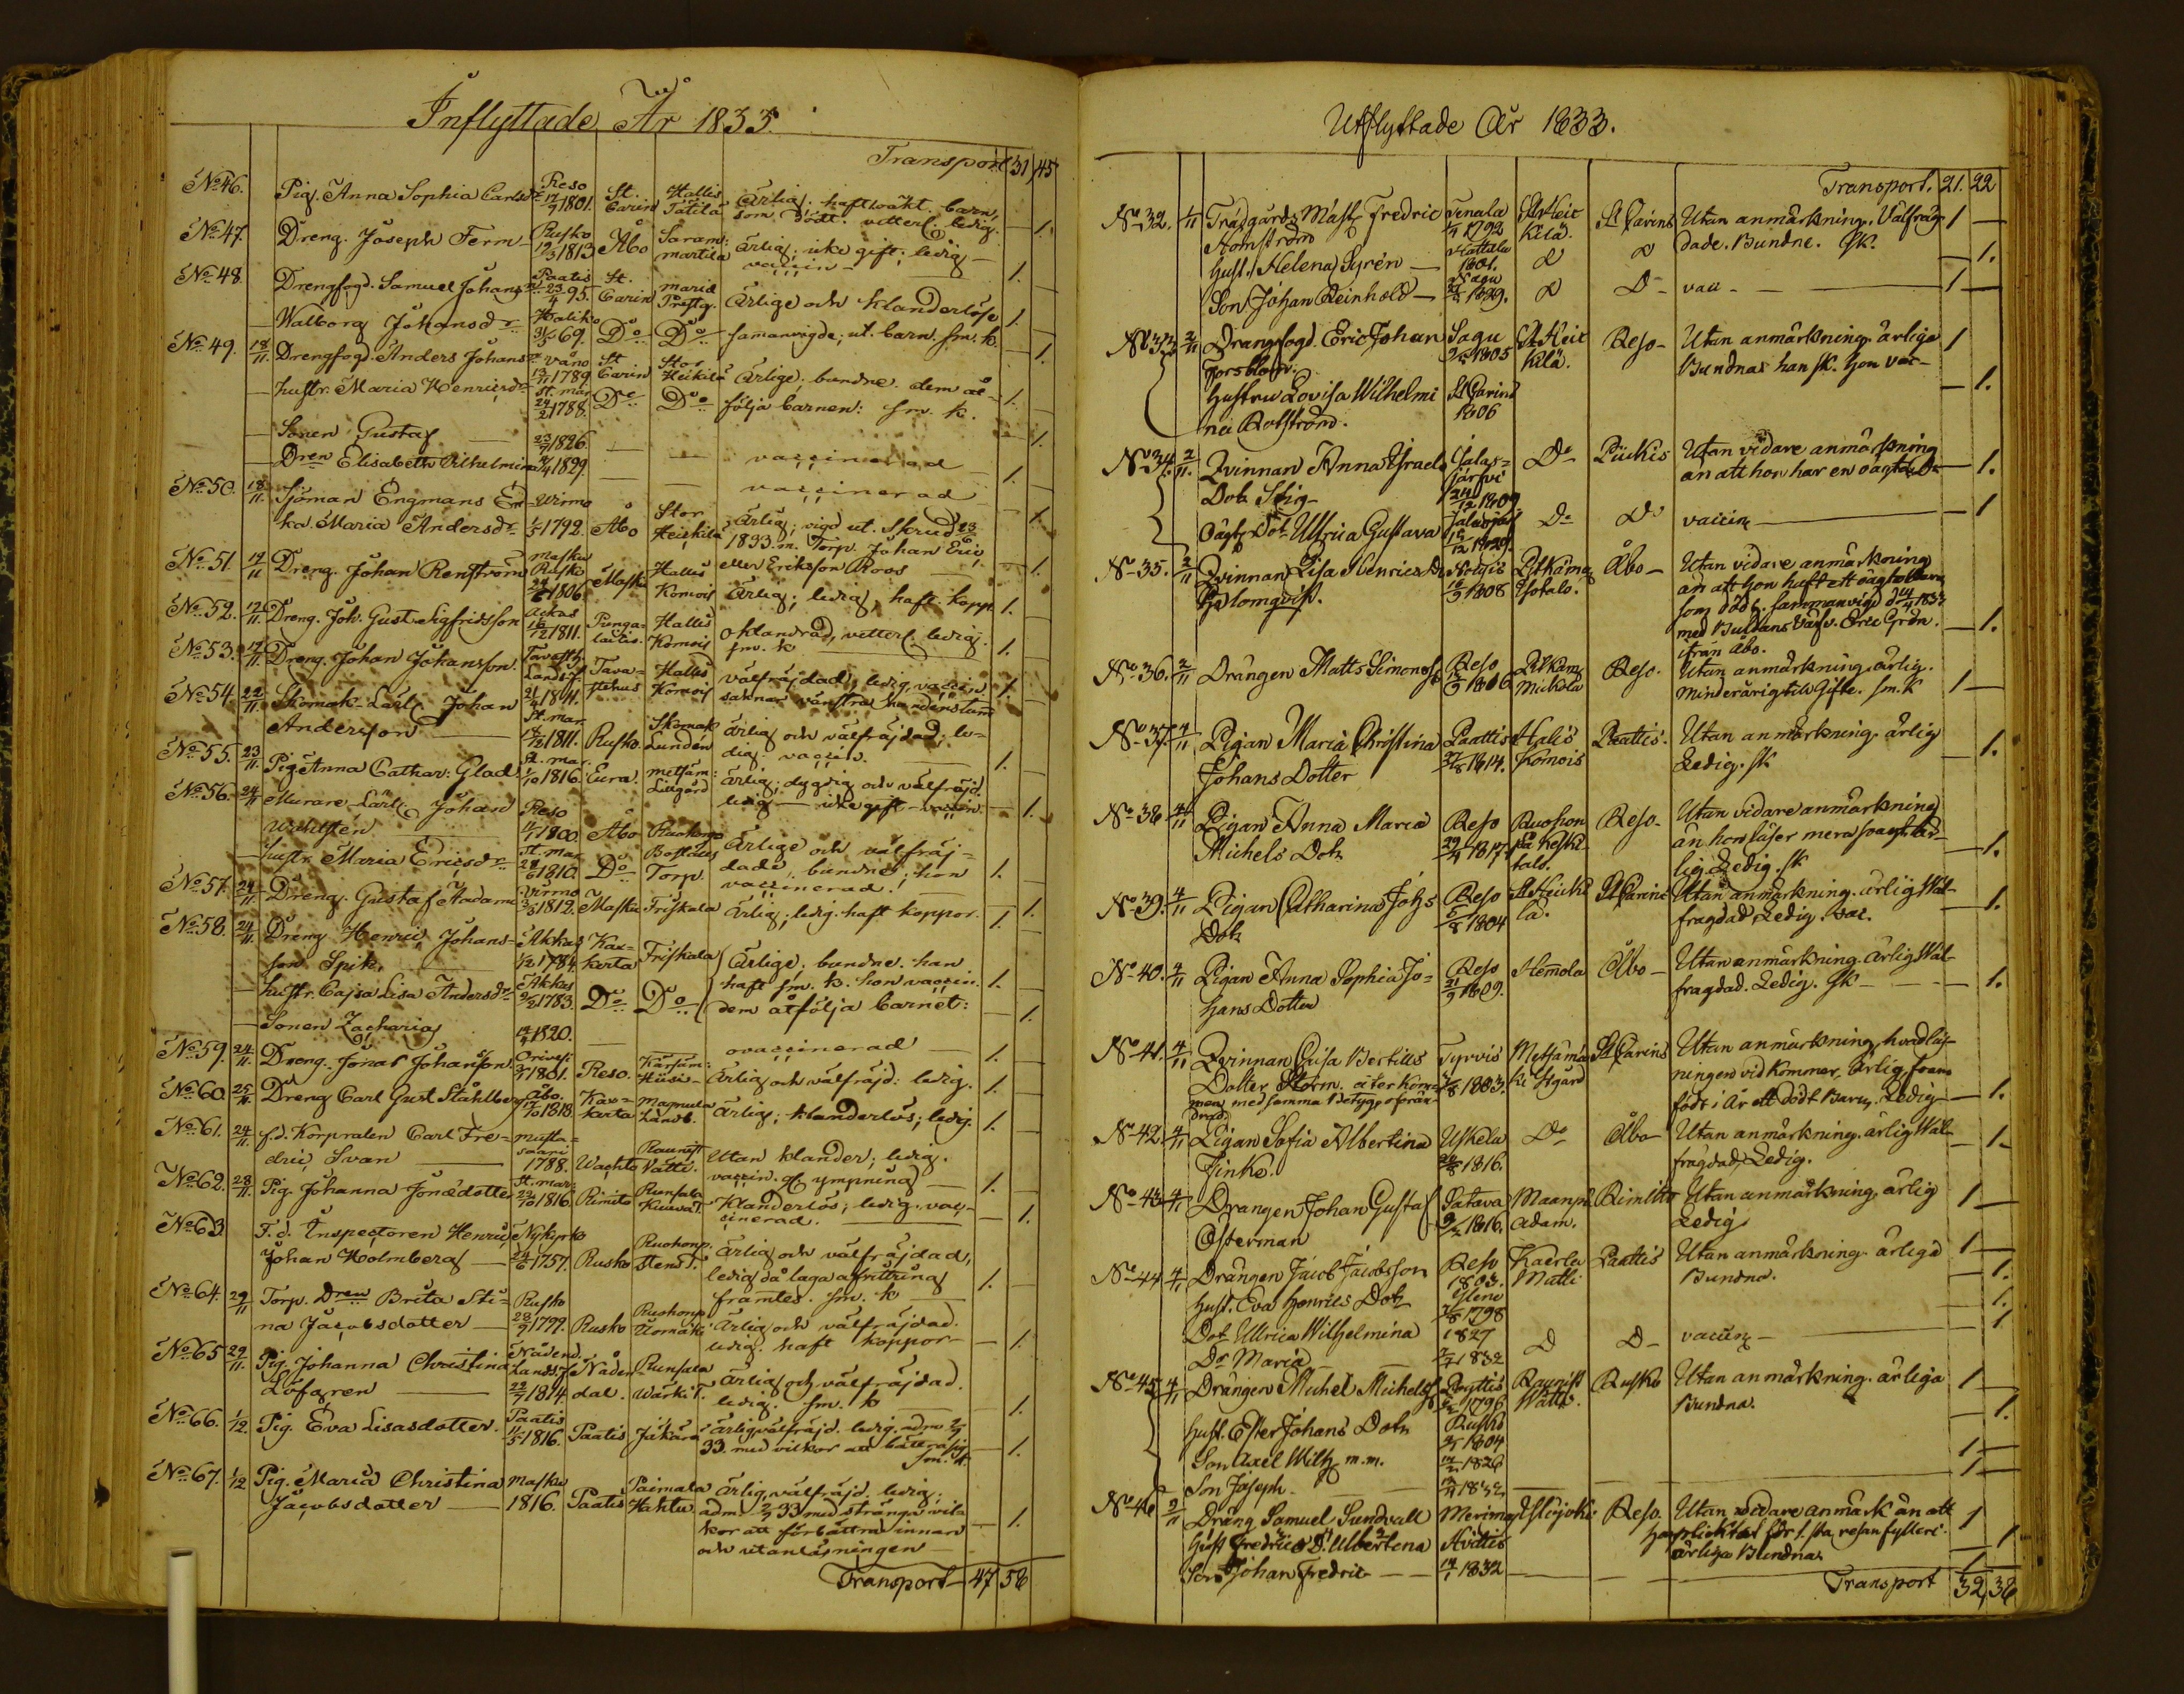 Inflyttade År 1833.
Transport 31 45
No 46. Pig. Anna Sophia Carlsdr Reso 17/9 1801. St. Carin Hallis Tätilä Ärlig; haft oäkt barn,
som dödt. vitterl. ledig. 1.
No 47. Dreng. Joseph Ferm Rusko 12/3 1813 Åbo Saram: martila ärlig; icke gift; ledig
vaccin 1.
No 48. Drengfogd. Samuel Johans Paatis 23/4 95. St. Carin Marie Prestg. Ärlige och klanderlöse 1.
Walborg Johansdr Haliko 31/5 69. Do Do sammanvigde, ut. barn. sm. k. 1.
No 49. 18/11. Drengfogd. Anders Johans Våno 13/11 1789. St Carin Stor Heikilä Ärlige; bundne. dem åt-
hustr. Maria Henricsdr St. mar 24/2 1788. Do Do följa barnen: sm. k. 1.
Sonen Gustaf 23/7 1826. vaccinerad 1.
Dren Elisabeth Vilhelmina 1829. vaccinerad
No 50. 18/11. Sjöman Engmans En- Wirmo
ka Maria Andersdr 1792. Åbo Stor Heickilä Ärlig; vigd ut. Skrud 23/6
1833. m. Torp. Johan Eric
eller Eriksson Roos 1.
No 51. 19/11 Dreng. Johan Renström Masku Rusko 1806. Masku Hallis Komois Ärlig; ledig, haft kopp. 1.
No 52. 12/11. Dreng. Joh. Gust. Sigfridsson 16/12 1811. Punga- laitis. Hallis Komois oklandrad, vitterl. ledig.
sm. k 1.
No 53. 17/11. Dreng. Johan Johansson. Tavasth Lands f. 21/4 1811. Tava- stehus Hallis Komois välfräjdad; ledig, vaccin
saknar vänstra 1.
No 54. 22/11. Skomak. Lärl. Johan
Andersson St. mar. 1811. Rusko. Skomak Lunden ärlig och välfräjdad; le-
dig vaccin. 1.
No 55. 23/11. Pig. Anna Cathar. Glad St. mar. 1816. Eura. Lillgård ärlig; dygdig och välfräjd.
ledig icke gift vaccin. 1.
No 56. 24/11 Murare Lärl. Johan
Wahlstén Reso 1800. Åbo Ruohonpä Ärlige och välfräj-
hustr. Maria Ericsdr St. mar 1810. Do Bostäus Torp. dade, bundne; hon
vaccinerad. 1.
No 57. 24/11 Dreng. Gustaf Aadams Virmo 1812. Masku Friskala Ärlig; ledig. haft koppor. 1.
No 58. 24/11. Dreng Henric Johans-
son Spik. 1784. Kax- kerta Friskala Ärlige; bundne. han
hustr. Cajsa Lisa Andersdr 1783. Do Do haft sm. k. hon vaccin. 1.
dem åtfölja barnet: 1.
Sonen Zacharias 1820. ovaccinerad 1.
No 59. 24/11. Dreng. Jonas Johansson. Orivesi 1801. Reso. Kärsäm: Hüsis Ärlig och välfräjd: ledig. 1.
No 60. 25/11. Dreng Carl Gust Ståhlberg Åbo. 1818. Kax- kerta Magnula Landb. Ärlig; klanderlös; ledig. 1.
No 61. 24/11. f.d. Korpralen Carl Fre-
dric Svan Musta- saari 1788. Wachto Raunist Vätti. Utan klander; ledig.
vaccin. 1.
No 62. 28/11. Pig. Johanna Jonædotter St. mar: 1816. Rimito Runsala Kuuva T. Klanderlös; ledig. vac-
cinerad. 1.
No 63. F.d. Inspectoren Henric
Johan Holmberg Nykyrko 24/6 1757. Rusko Ruohonp. Stens T. Ärlig och välfräjdad,
ledig då laga afvittring
framtes. sm. k 1.
No 64. 29/11 Torp. Dren Brita Sti-
na Jacobsdotter Rusko 1799. Rusko Ruohonp. Uomäki Ärlig och välfräjdad.
ledig. haft koppor 1.
No 65 29/11. Pig. Johanna Christina
Löfgren Nådend. Lands. f. 22/7 1814. Nåden- dal. Runsala Warki T. Ärlig och välfräjdad.
ledig. sm. k 1.
No 66. 1/12. Pig. Eva Lisasdotter. Paatis 11/5 1816. Paatis Jäkärä ärlig välfräjd. ledig. adm.
33 med vilkor att bättra sig
sm. k. 1.
No 67. 1/12 Pig. Maria Christina
Jacobsdotter Masku 1816. Paatis Paimala Haktu Ärlig, välfräjd. ledig.
adm. 33 med stränga vil-
kor att förbättra innan
och utanläsningen 1.
Transport 47 58
Utflyttade År 1833.
Transport. 21. 22
No 32. 4/11 Trädgårds Mäst. Fredric
Stomström Tenala 1792 St Heic kilä. St Carins Utan anmärkning. Välfräg 1
dade. Bundne. SK.
Hust. Helena Syrén Hattula 1801. 1.
Son Johan Reinhold Nagu 1829. Do vacc 1
No 33 2/11 Drangfogd. Eric Johan
Forsblom. Sagu 1805 St Heic kilä. Reso Utan anmärkning. ärliga 1
Bundnas han sk. hon vac
Hustru Lovisa Wilhelmi
na Rotström. St Carins 1806 1.
No 34. 2/11. Qvinnan Anna Israels
Dotr Stig Ijalas- järfvi 24/12 1809 Do Piickis Utan vidare anmärkning
än att hon har en oägta Dr 1.
Oägt Dotr Ulrica Gustava 15/12 1829. Do Do vaccin 1
No 35. 2/11 Qvinnan Lisa Henrics Dr
Blomqvist. 1808 Pitkämä Isotalo. Åbo Utan vidare anmärkning
än att hon haft ett oägta barn
som dödt. Sammanvigd d 14/4 1833
med
ifrån Åbo. 1.
No 36. 2/11 Drängen Matts Simonss Reso 1806 Pitkäm Mickola Reso. Utan anmärkning. ärlig.
Minderårig till Gifte. sm. k 1
No 37. 4/11 Pigan Maria Christina
Johans Dotter Paattis 1814. Halis Komois Paattis. Utan anmärkning. ärlig
Ledig. sk 1.
No 38 4/11 Pigan Anna Maria
Michels Dotr Reso 29/4 1817 Ruohon pä Keski- talo. Reso. Utan vidare anmärkning
än hon läser mera svagt. är-
lig. Ledig. sk 1.
No 39. 4/11 Pigan Catharina Johs
Dotr Reso 5/8 1804 St Heicki la. St Carins Utan anmärkning. ärlig Wäl-
fragdad, Ledig. vac. 1.
No 40. 4/11 Pigan Anna Sophia Jo-
hans Dotter Reso 21/9 1809. Hemola Åbo Utan anmärkning. ärlig Wäl-
fragdad. Ledig. Sk 1.
No 41. 4/11 Qvinnan Caisa Bertills
Dotter Storm. återkom-
men med samma Betyg oförän-
drad. Tyrvis 1803. St Carins Utan anmärkning, hvad läs-
ningen vidkommer, ärlig, fram
födt i År ett Dödt Barn. Ledig 1.
No 42. 4/11 Pigan Sofia Albertina
Finke. Uskela 1816. Do Åbo Utan anmärkning. ärlig Wäl-
fragdad, Ledig. 1
No 43 4/11 Drangen Johan Gustaf
Österman Satava 1816. Maanp. adam. Rimitto Utan anmärkning. ärlig
Ledig 1
No 44 4/11 Drängen Jacob Jacobsson Reso 1803. Kaerla Matti Paattis Utan anmärkning. ärliga 1
Bundna.
Hust. Eva Henrics Dotr 1798 1.
Dotr Ullrica Wilhelmina 1827 D D vaccin 1.
Dr Maria 1832 1
No 45 4/11 Drängen Michel Michelss Pöyttis 1796 Raunist Wätti. Rusko Utan anmärkning. ärliga 1
Bundna.
Hust. Ester Johans Dotr Rusko 1804 1.
Son Axel Wilh m. m. 1826 1
Son Joseph 1832 1
No 46 2/11 Dräng Samuel Sundvall Merima Islojoki Reso. Utan vidare anmärk än att 1
han pliktat för 1sta resan fylleri.
Hust Fredrica D. Ulbertena Hvittis 1
ärliga Bundna
Son Johan Fredric 14/1 1832 1
Transport 32 36